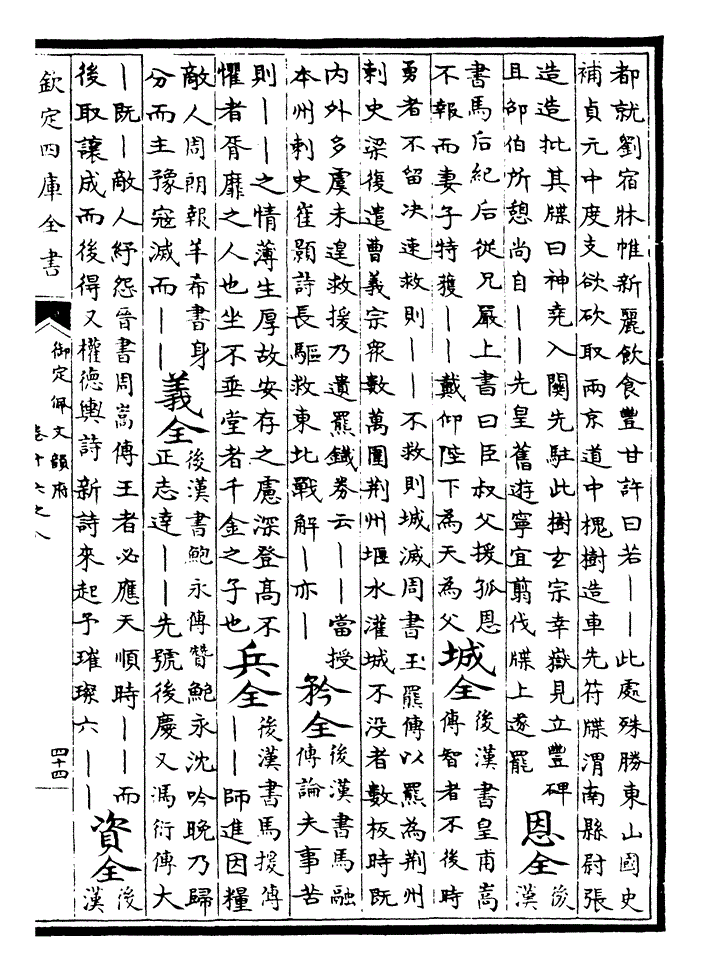 都就劉宿牀帷新麗飲食豐甘許曰若——此處殊勝東山國史
補貞元中度支欲砍取兩京道中槐樹造車先符牒渭南縣尉張
造造批其牒曰神堯入關先駐此樹玄宗幸嶽見立豐碑
且卲伯所憩尚自——先皇舊遊寧宜翦伐牒上遂罷
恩全
後
漢
書馬后紀后從兄嚴上書曰臣叔父援孤恩
不報而妻子特獲——戴仰陛下為天為父
城全
後漢書皇甫嵩
傳智者不後時
勇者不留决速救則——不救則城滅周書王羆傳以羆為荆州
刺史梁復遣曹義宗衆數萬圍荆州堰水灌城不没者數板時既
内外多虞未遑救援乃遺羆鐵券云——當授
本州刺史崔顥詩長驅救東北戰解—亦—
矜全
後漢書馬融
傳論夫事苦
則——之情薄生厚故安存之慮深登高不
懼者胥靡之人也坐不垂堂者千金之子也
兵全
後漢書馬援傳
——師進因糧
敵人周朗報羊希書身
分而主豫寇滅而——
義全
後漢書鮑永傳贊鮑永沈吟晚乃歸
正志達——先號後慶又馮衍傳大
—既—敵人紓怨晉書周嵩傳王者必應天順時——而
後取讓成而後得又權德輿詩新詩來起予璀璨六——
資全
後
漢
欽定四庫全書
御定佩文韻府
卷十六之八
四十四